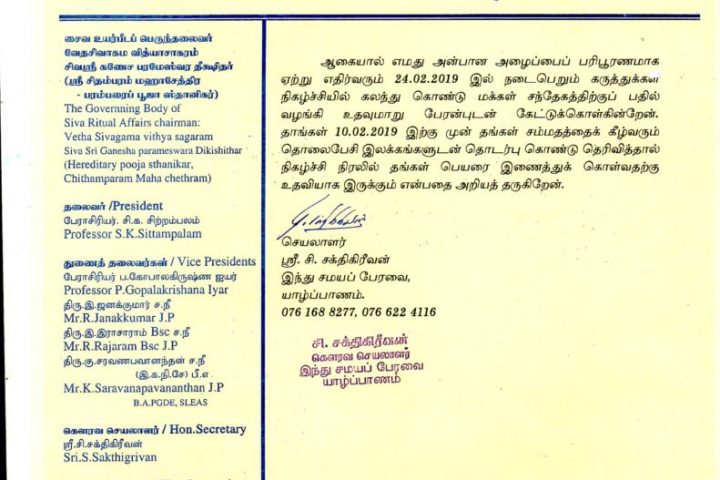 சைவ உயர்பீடப் பெருந்தலைவர்
வேதசிவாகம வித்யாசாகரம்
சிவஸ்ரீ கணேச பரமேஸ்வர தீக்ஷிதர்
(ஸ்ரீ சிதம்பரம் மஹாசேத்திர
- பரம்பரைப் பூஜா ஸ்தானிகர்)
The Governning Body of
Siva Ritual Affairs chairman:
Vetha Sivagama vithya sagaram
Siva Sri Ganesha parameswara Dikishithar
(Hereditary pooja sthanikar,
Chithamparam Maha chethram)
தலைவர் /President
பேராசிரியர். சி.க. சிற்றம்பலம்
Professor S.K.Sittampalam
துணைத் தலைவர்கள் / Vice Presidents
பேராசிரியர் ப.கோபாலகிருஷ்ண ஐயர்
Professor P.Gopalakrishana Iyar
திரு.இ.ஜனக்குமார் ச.நீ
Mr.R.Janakkumar J.P
திரு.இ.இராசாராம் Bsc ச.நீ
Mr.R.Rajaram Bsc J.P
திரு.கு.சரவணபவானந்தன் ச.நீ
(இ.க.நி.சே) பீ.எ
Mr.K.Saravanapavananthan J.P
B.A.PGDE, SLEAS
கௌரவ செயலாளர் / Hon.Secretary
ஸ்ரீ.சி.சக்திகிரீவன்
Sri.S.Sakthigrivan
ஆகையால் எமது அன்பான அழைப்பைப் பரிபூரணமாக
ஏற்று எதிர்வரும் 24.02.2019 இல் நடைபெறும் கருத்துக்கள
நிகழ்ச்சியில் கலந்து கொண்டு மக்கள் சந்தேகத்திற்குப் பதில்
வழங்கி உதவுமாறு பேரன்புடன் கேட்டுக்கொள்கின்றேன்.
தாங்கள் 10.02.2019 இற்கு முன் தங்கள் சம்மதத்தைக் கீழ்வரும்
தொலைபேசி இலக்கங்களுடன் தொடர்பு கொண்டு தெரிவித்தால்
நிகழ்ச்சி நிரலில் தங்கள் பெயரை இணைத்துக் கொள்வதற்கு
உதவியாக இருக்கும் என்பதை அறியத் தருகிறேன்.
செயலாளர்
ஸ்ரீ. சி. சக்திகிரீவன்
இந்து சமயப் பேரவை,
யாழ்ப்பாணம்.
076 168 8277, 076 622 4116
சி. சக்திகிரீவன்
கௌரவ செயலாளர்
இந்து சமயப் பேரவை
யாழ்ப்பாணம்